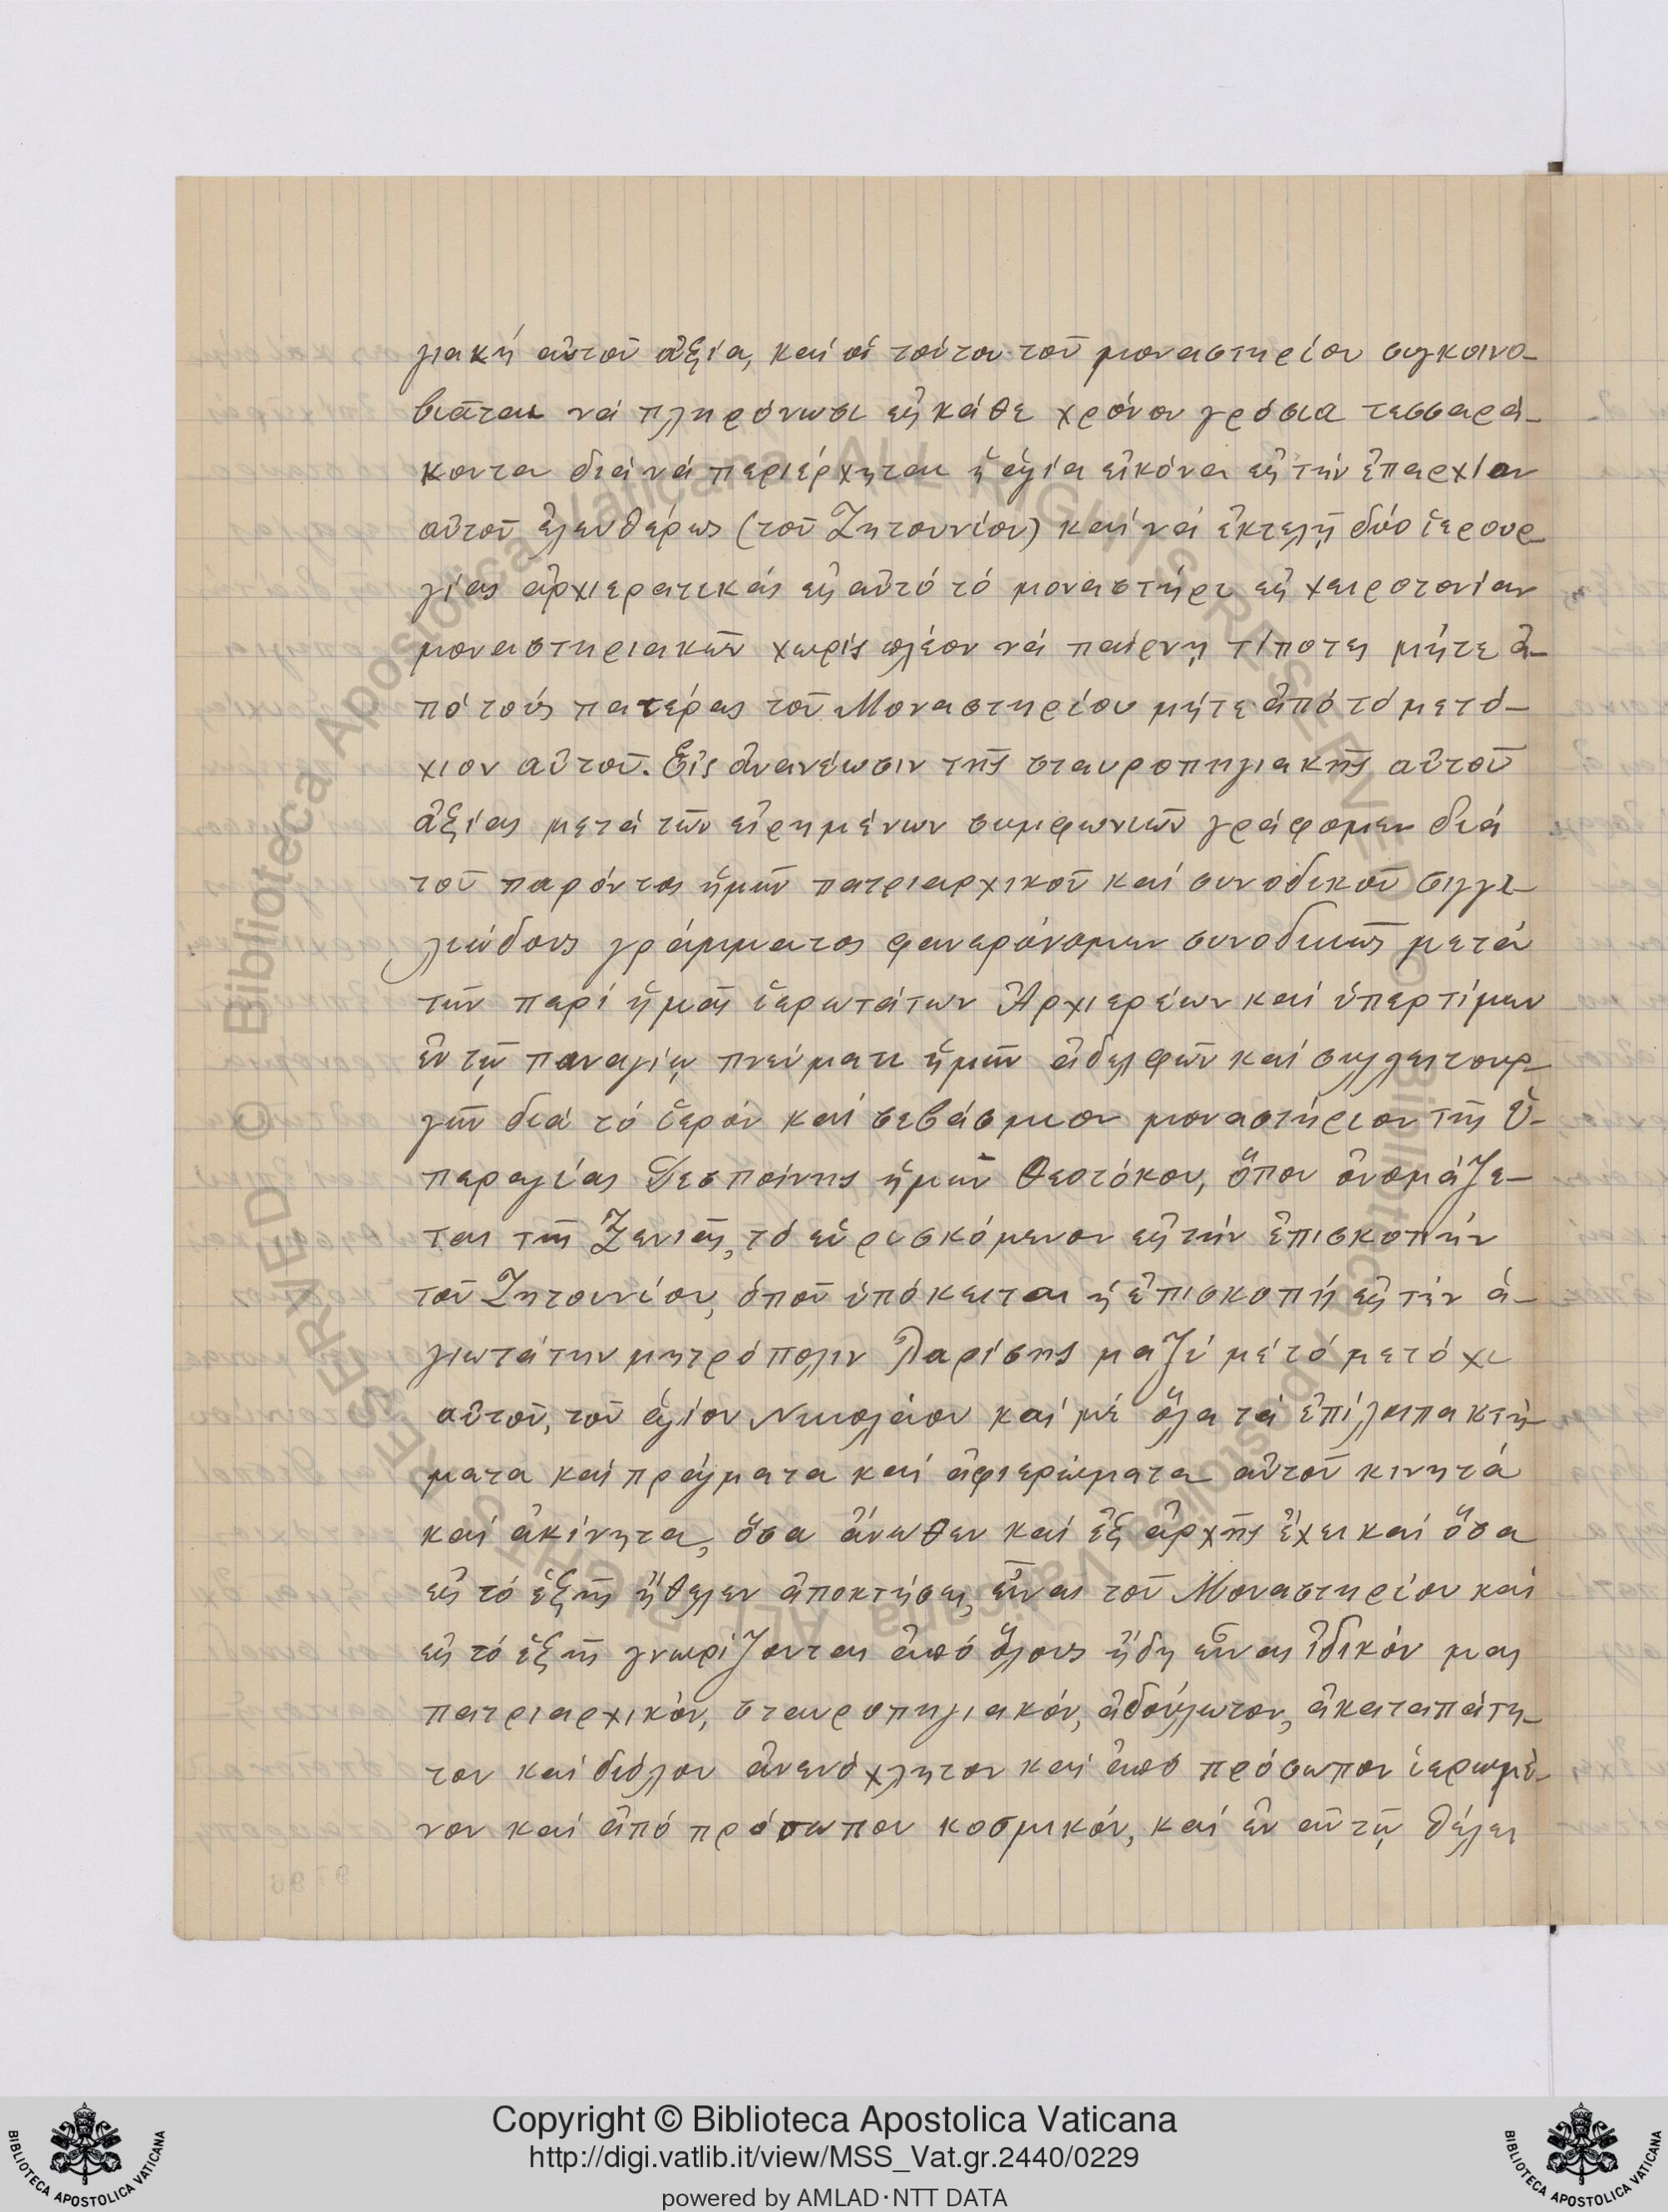 γιακή αὐτοῦ ἀξία, καί οἱ τούτου τοῦ μοναστηρίου συγκοινο-
βιᾶται νά πληρώνωσι εἰς κάθε χρόνον γρόσια τεσσαρά-
κοντα διά νά περιέρχηται ἡ ἁγία εἰκόνα εἰς τήν ἐπαρχίαν
αὐτοῦ ἐλευθέρως (τοῦ Ζητουνίου) καί νά ἐκτελῇ δύο ἱερουρ-
γίας ἀρχιερατικάς εἰς αὐτό τό μοναστήρι εἰς χειροτονίαν
μοναστηριακῶν χωρίς πλέον νά παίρνῃ τίποτες μήτε ἀ-
πό τούς πατέρας τοῦ Μοναστηρίου μήτε ἀπό τό μετό-
χιον αὐτοῦ. Εἰς ἀνανέωσιν τῆς σταυροπηγιακῆς αὐτοῦ
ἀξίας μετά τῶν εἰρημένων συμφωνιῶν γράφομεν διά
τοῦ παρόντος ἡμῶν πατριαρχικοῦ καί συνοδικοῦ σιγγι-
λιώδους γράμματος φανερόνομεν συνοδικῶς μετά
τῶν παρί ἡμᾶς ἱερωτάτων Ἀρχιερέων καί ὑπερτίμων
ἐν τῷ παναγίῳ πνεύματι ἡμῶν ἀδελφῶν καί συλλειτουρ-
γῶν διά τό ἱερόν καί σεβάσμιον μοναστήριον τῆς ὑ-
περαγίας Δεσποίνης ἡμῶν Θεοτόκου, ὅπου ὀνομάζε-
ται τῆς Ξενιᾶς, τό εὑρισκόμενον εἰς τήν ἐπισκοπήν
τοῦ Ζητουνίου, ὁποῦ ὑπόκειται ἡ ἐπισκοπή εἰς τήν ἁ-
γιωτάτην μητρόπολιν Λαρίσης μαζύ μέ τό μετόχι
αὐτοῦ, τοῦ ἁγίου Νικολάου καί μέ ὅλα τά ἐπίλοιπα κτή-
ματα καί πράγματα καί ἀφιερώματα αὐτοῦ κινητά
καί ἀκίνητα, ὅσα ἄνωθεν καί ἐξ ἀρχῆς ἔχει καί ὅσα
εἰς τό ἑξῆς ἤθελεν ἀποκτήσει, εἶναι τοῦ Μοναστηρίου καί
εἰς τό ἑξῆς γνωρίζονται ἀπό ὅλους ἤδη εἶναι ἰδικόν μας
πατριαρχικόν, σταυροπηγιακόν, ἀδούλωτον, ἀκαταπάτη-
τον καί διόλου ἀνενόχλητον καί ἀπό πρόσωπον ἱερωμέ-
νον καί ἀπό πρόσωπον κοσμικόν, καί ἐν αὐτῷ θέλει
Copyright © Biblioteca Apostolica Vaticana
http://digi.vatlib.it/view/MSS_Vat.gr.2440/0229
powered by AMLAD·NTT DATA